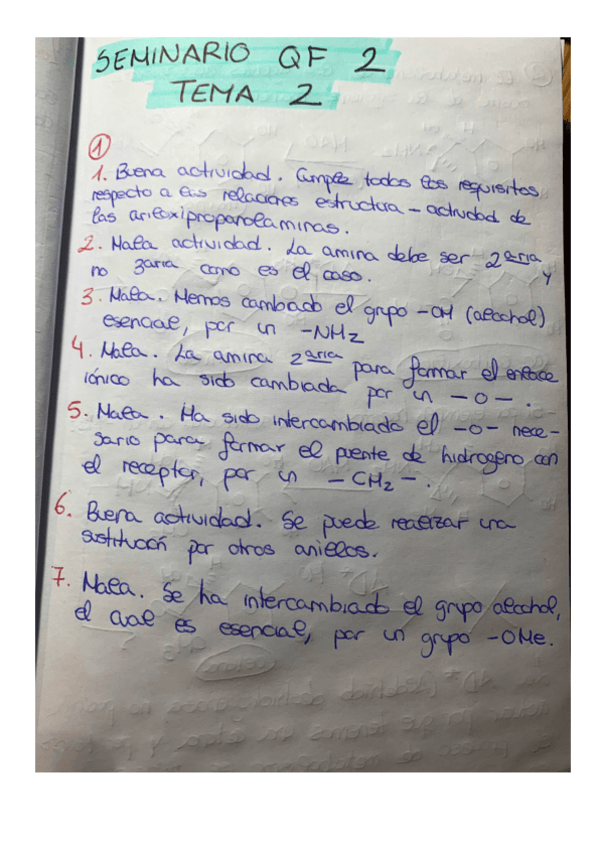 SEMINARIO QF 2
TEMA 2
1
1. Buena actividad. Cumple todos los requisitos
respecto a las relaciones estructura - actividad de
las ariloxipropanolaminas.
2. Mala actividad. La amina debe ser 2aria y
no 3aria como es el caso.
3. Mala. Hemos cambiado el grupo -OH (alcohol)
esencial, por un -NH2
4. Mala. La amina 2aria para formar el enlace
iónico ha sido cambiada por un -O-.
5. Mala. Ha sido intercambiado el -O- nece-
sario para formar el puente de hidrógeno con
el receptor, por un -CH2-.
6. Buena actividad. Se puede realizar una
sustitución por otros anillos.
7. Mala. Se ha intercambiado el grupo alcohol,
el cual es esencial, por un grupo -OMe.